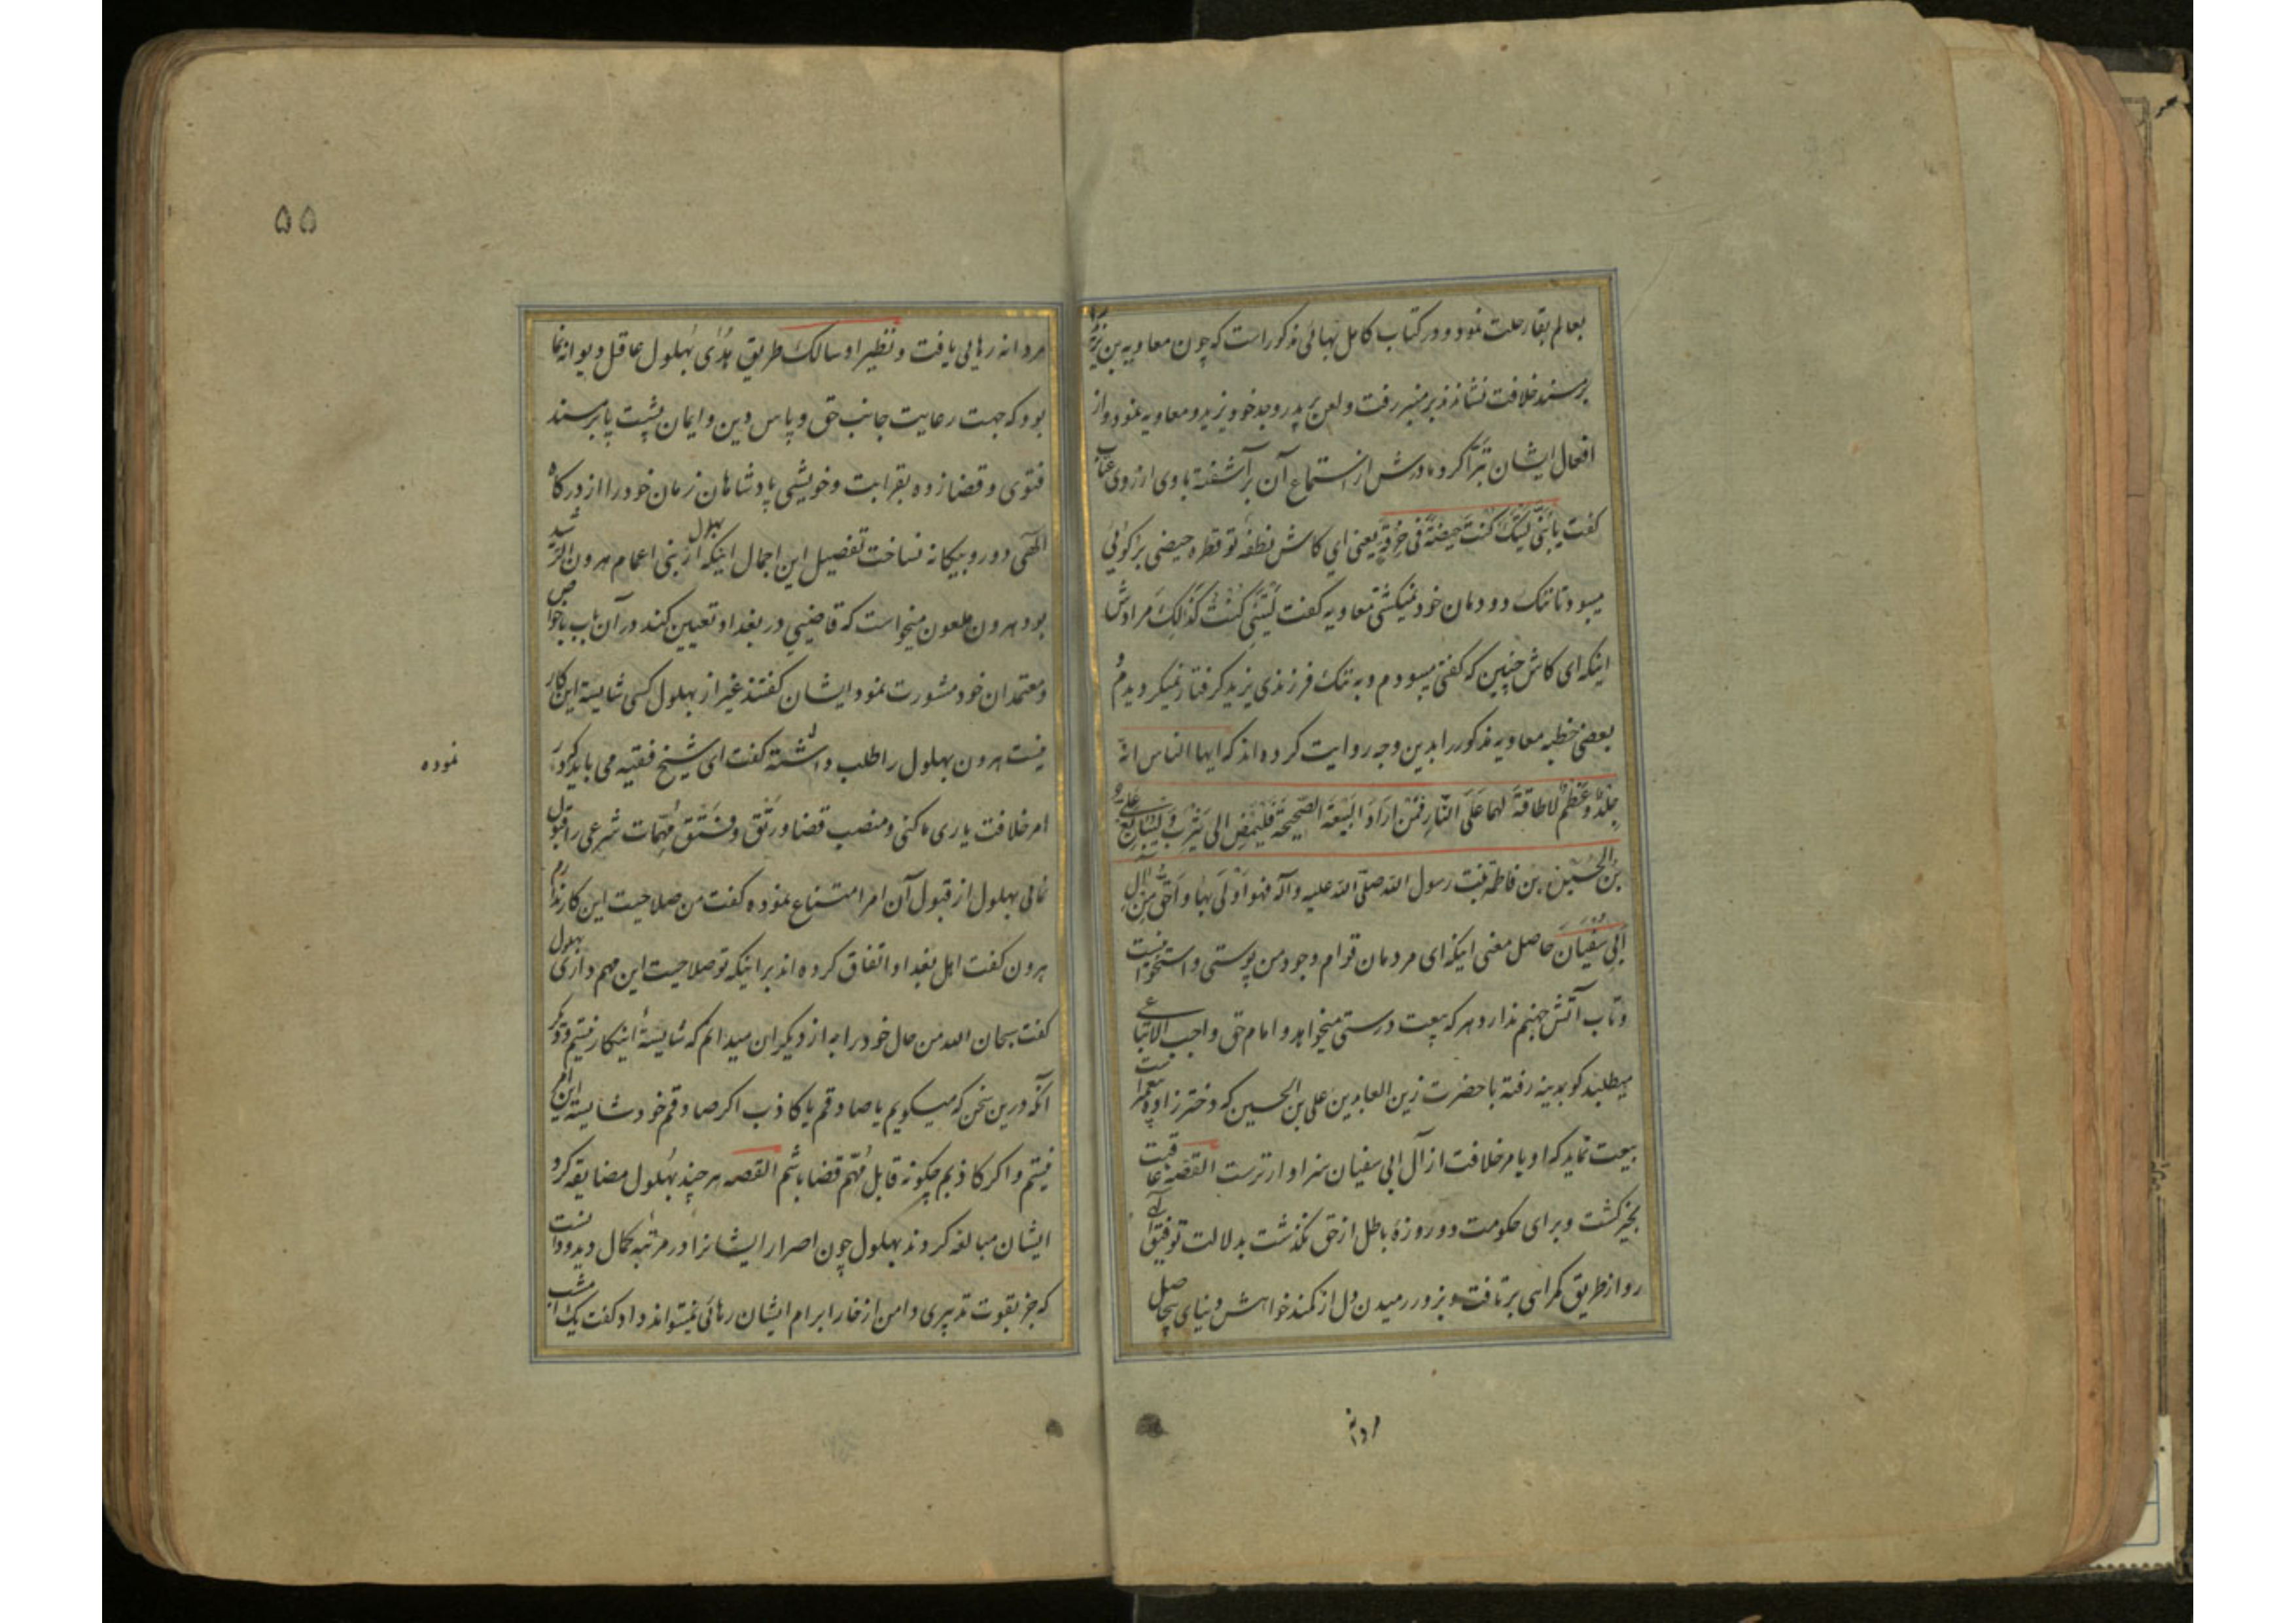 بعالم بقا رحلت نمود و در کتاب کامل بهائی مذکور است که چون معاویه بن یزید را
بر مسند خلافت نشاندند بر منبر رفت و لعن بر پدر و جد خود یزید و معاویه نمود و از
افعال ایشان تبرّا کرد مادرش از استماع آن برآشفته با وی از روی عتاب
گفت یا بُنَیَّ لَیتَکَ کُنتَ حَیضَةً فی خِرقَةٍ یعنی ای کاش نطفه تو قطره حیضی بر کهنه
میبود تا ننک دودمان خود نمیکشتی معاویه گفت لَیتَنی کُنتُ کَذٰلِکَ مرادش
اینکه ای کاش چنین که گفتی میبودم و به ننک فرزندی یزید کرفتار نمیکردیدم و
بعضی خطبه معاویه مذکور را بدین وجه روایت کرده اند که ایها الناس انّه
جِلدٌ وَ عَظمٌ لا طاقَةَ لَهُما عَلَی النّارِ فَمَن اَرادَ البَیعَةَ الصَّحیحَةَ فَلیَمضِ الی یَثرِبَ وَ لیُبایِع علی
بن الحسین بن فاطمه بنت رسول الله صلّی الله علیه و آله فهو اَولَی بها و اَحَقُّ مِن آل
اَبی سُفیانَ حاصل معنی اینکه ای مردمان قوام وجود من پوستی و استخوانیست
و تاب آتش جهنم ندارد هر که بیعت درستی میخواهد و امام حق و واجب الاتباعی
میطلبد کو بمدینه رفته با حضرت زین العابدین علی بن الحسین که دختر زاده پیغمبر است
بیعت نماید که او بامر خلافت از آل ابی سفیان سزاوارترست القصه عاقبت
بخیر کشت و برای حکومت دو روزهٔ باطل از حق نکذشت بدلالت توفیق الهی
رو از طریق کمراهی برتافت و بزور رمیدن دل از کمند خواهش دنیای بیحاصل
مردانه
۵۵
مردانه رهایی یافت و نظیر او سالک طریق هُدٰی بهلول عاقل دیوانه نما
بود که جهت رعایت جانب حق و پاس دین و ایمان پشت پا بر مسند
فتوی و قضا زده بقرابت و خویشی پادشاهان زمان خود را از درکاه
الهی دور و بیکانه نساخت تفصیل این اجمال اینکه بهلول از بنی اعمام هرون الرشید
بود هرون ملعون میخواست که قاضیی در بغداد تعیین کند در آن باب با خواص
و معتمدان خود مشورت نمود ایشان گفتند غیر از بهلول کسی شایسته این کار
نیست هرون بهلول را طلب داشته گفت ای شیخ فقیه می باید که در
نموده
امر خلافت یاری ما کنی و منصب قضا و رتق و فتق مهمّات شرعی را قبول
نمائی بهلول از قبول آن امر امتناع نموده گفت من صلاحیت این کار ندارم
هرون گفت اهل بغداد اتفاق کرده اند بر اینکه تو صلاحیت این مهم داری بهلول
گفت سبحان الله من حال خود را به از دیکران میدانم که شایستهٔ اینکار نیستم و دیکر
آنکه درین سخن که میکویم یا صادقم یا کاذب اکر صادقم خود شایسته این امر
نیستم و اکر کاذبم چکونه قابل مُهّم قضا باشم القصه هر چند بهلول مضایقه کرد
ایشان مبالغه کردند بهلول چون اصرار ایشانرا در مرتبه کمال دید و دانست
که جز بقوت تدبیری دامن از خار ابرام ایشان رهائی نمیتواند داد گفت یک امشب